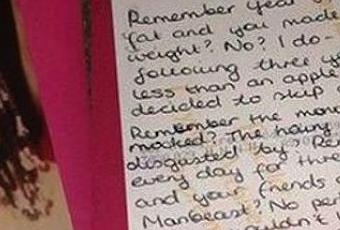 Remember Year
fat and you made
weight? No? I do -
following three ye
less than an apple
decided to skip
Remember the mon
mocked? The hairy
disgusted by? Rem
every day for three
and your friends
Manbeast? No per